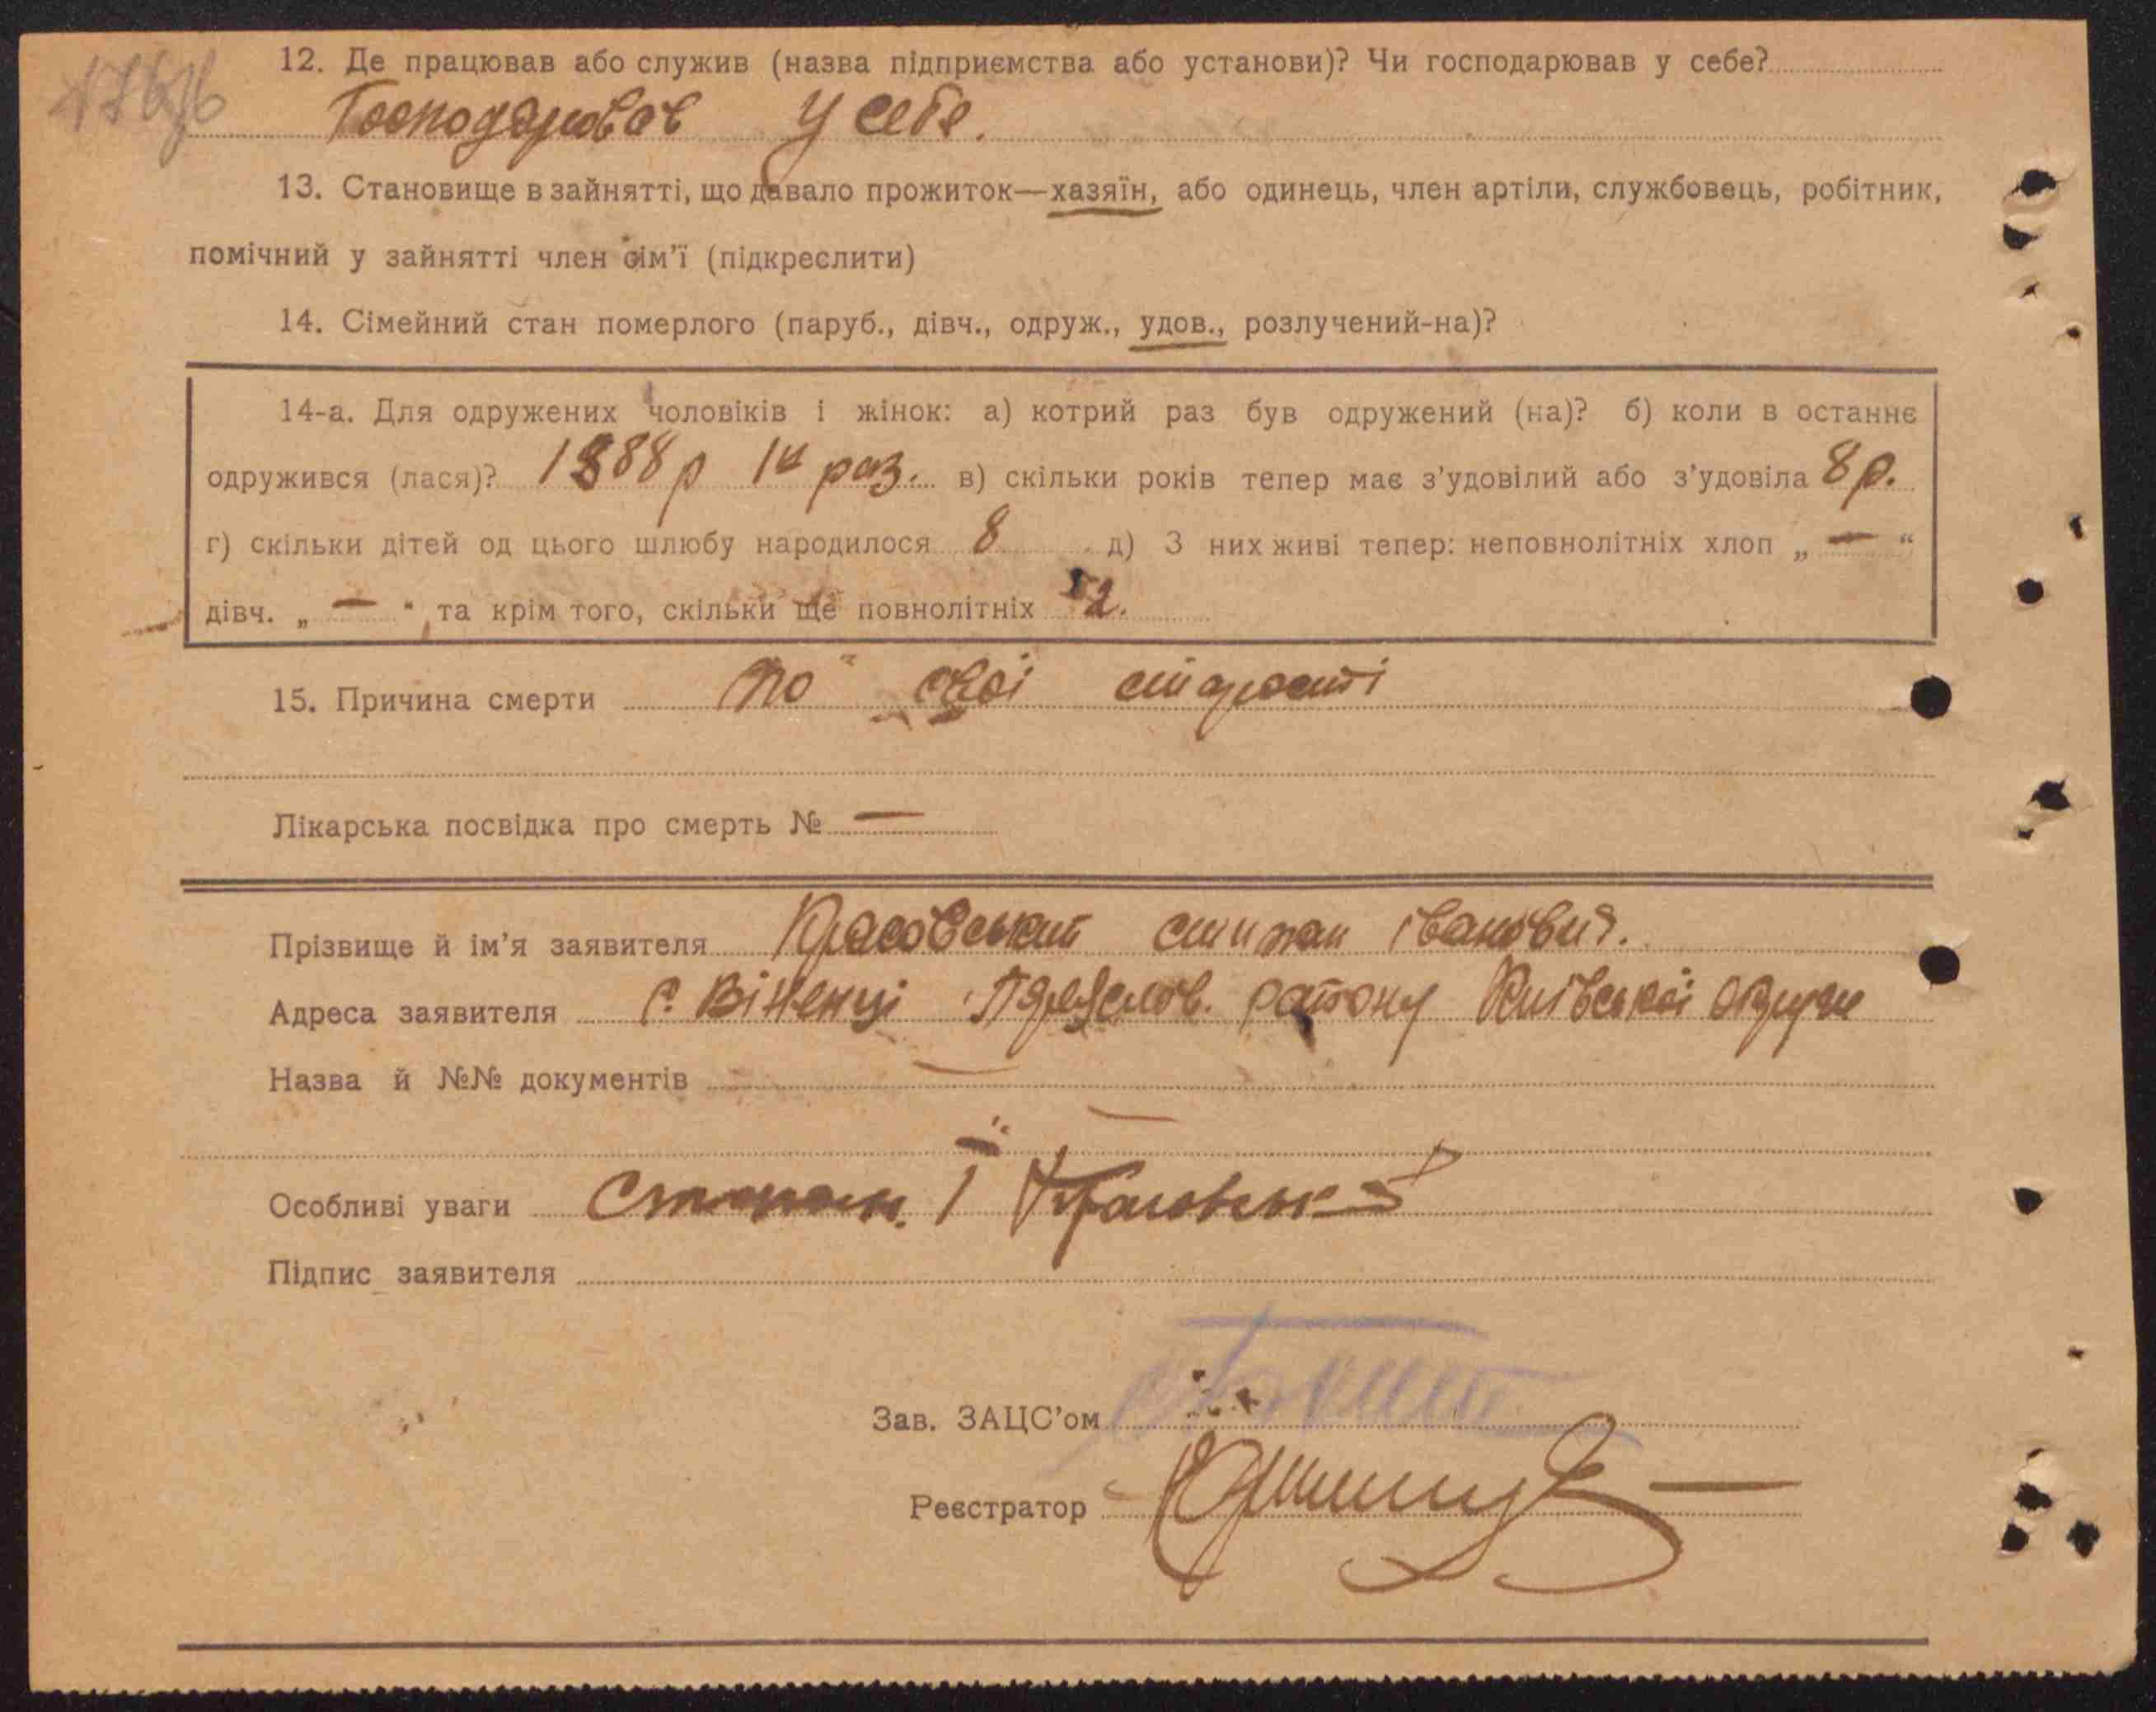 12. Де працював або служив (назва підприємства або установи)? Чи господарював у себе?
Господарював у себе.
13. Становище в зайнятті, що давало прожиток—хазяїн, або одинець, член артіли, службовець, робітник,
помічний у зайнятті член сім'ї (підкреслити)
14. Сімейний стан померлого (паруб., дівч., одруж., удов., розлучений-на)?
14-а. Для одружених чоловіків і жінок: а) котрий раз був одружений (на)? б) коли в останнє
одружився (лася)? 1888 р 1й раз. в) скільки років тепер має з'удовілий або з'удовіла 8 р.
г) скільки дітей од цього шлюбу народилося 8 д) З них живі тепер: неповнолітніх хлоп „ — “
дівч. „ — “, та крім того, скільки ще повнолітніх 2.
15. Причина смерти по свої старості
Лікарська посвідка про смерть № —
Прізвище й ім'я заявителя Красовський Іванович.
Адреса заявителя с. Віненці Переяслов. району Київської округи
Назва й №№ документів —
Особливі уваги Степан І
Підпис заявителя
Зав. ЗАЦС'ом
Реєстратор